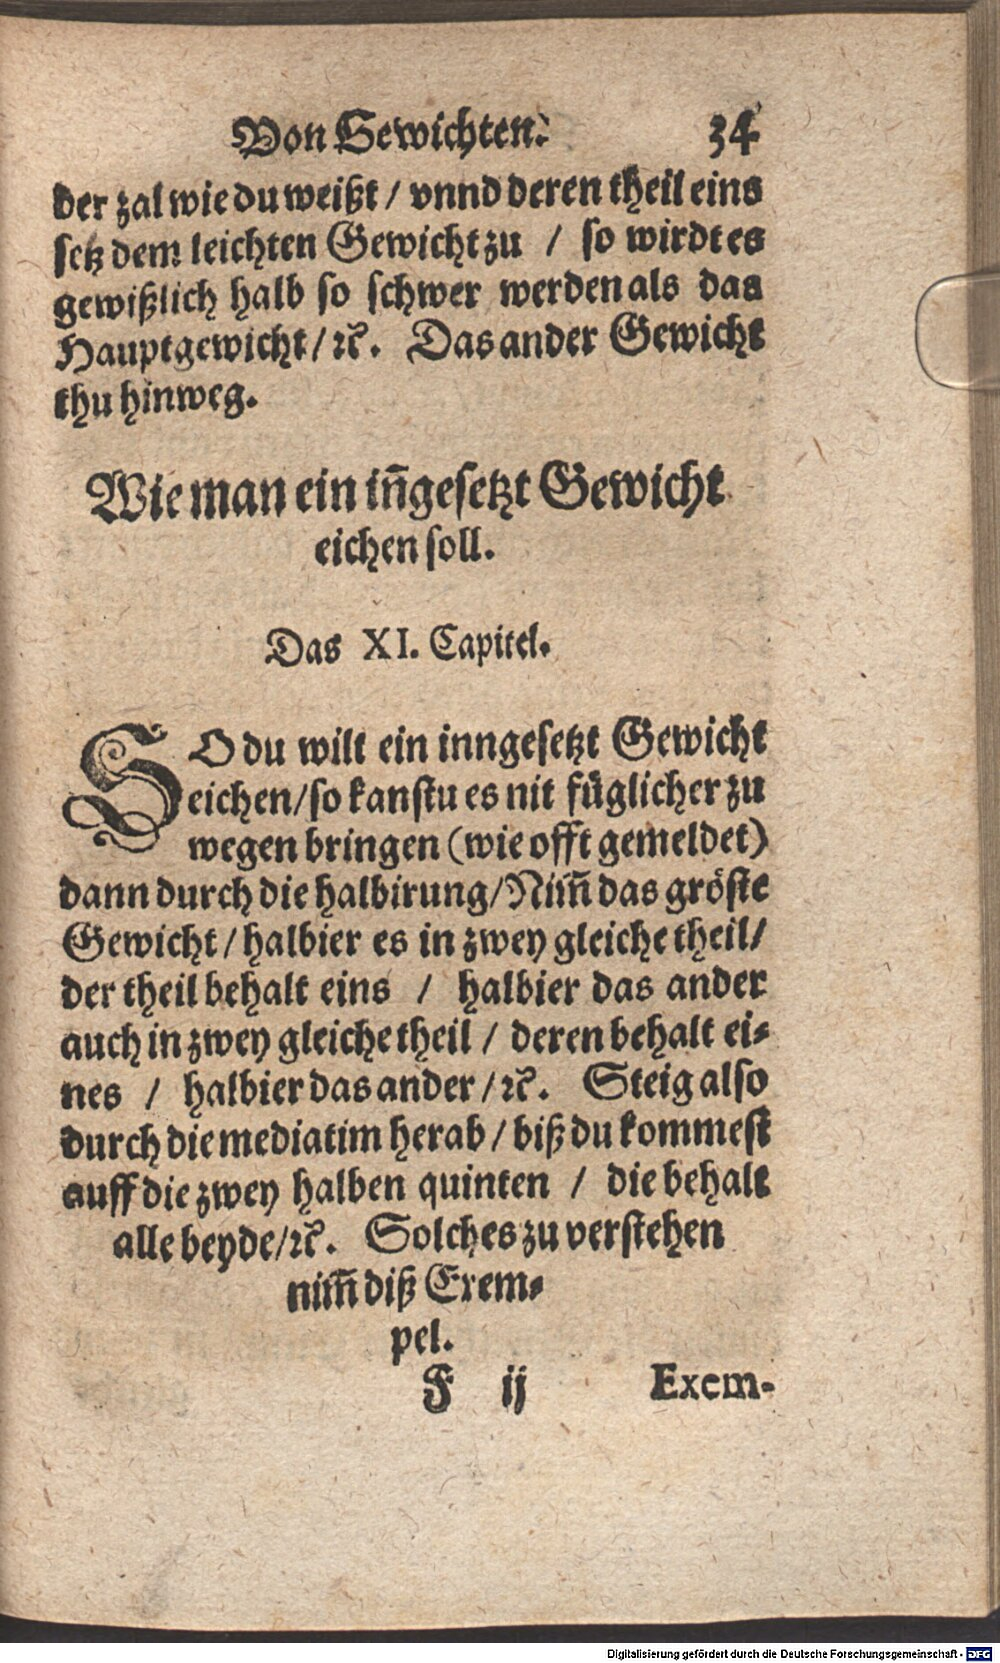 Von Gewichten. 34
der zal wie du weißt / vnnd deren theil eins
setz dem leichten Gewicht zu / so wirdt es
gewißlich halb so schwer werden als das
Hauptgewicht / ꝛc. Das ander Gewicht
thu hinweg.
Wie man ein iñgesetzt Gewicht
eichen soll.
Das XI. Capitel.
SO du wilt ein inngesetzt Gewicht
eichen / so kanstu es nit füglicher zu
wegen bringen (wie offt gemeldet)
dann durch die halbirung / Nim̃ das gröste
Gewicht / halbier es in zwey gleiche theil /
der theil behalt eins / halbier das ander
auch in zwey gleiche theil / deren behalt ei-
nes / halbier das ander / ꝛc. Steig also
durch die mediatim herab / biß du kommest
auff die zwey halben quinten / die behalt
alle beyde / ꝛc. Solches zu verstehen
nim̃ diß Exem-
pel.
F ij Exem-
Digitalisierung gefördert durch die Deutsche Forschungsgemeinschaft - DFG